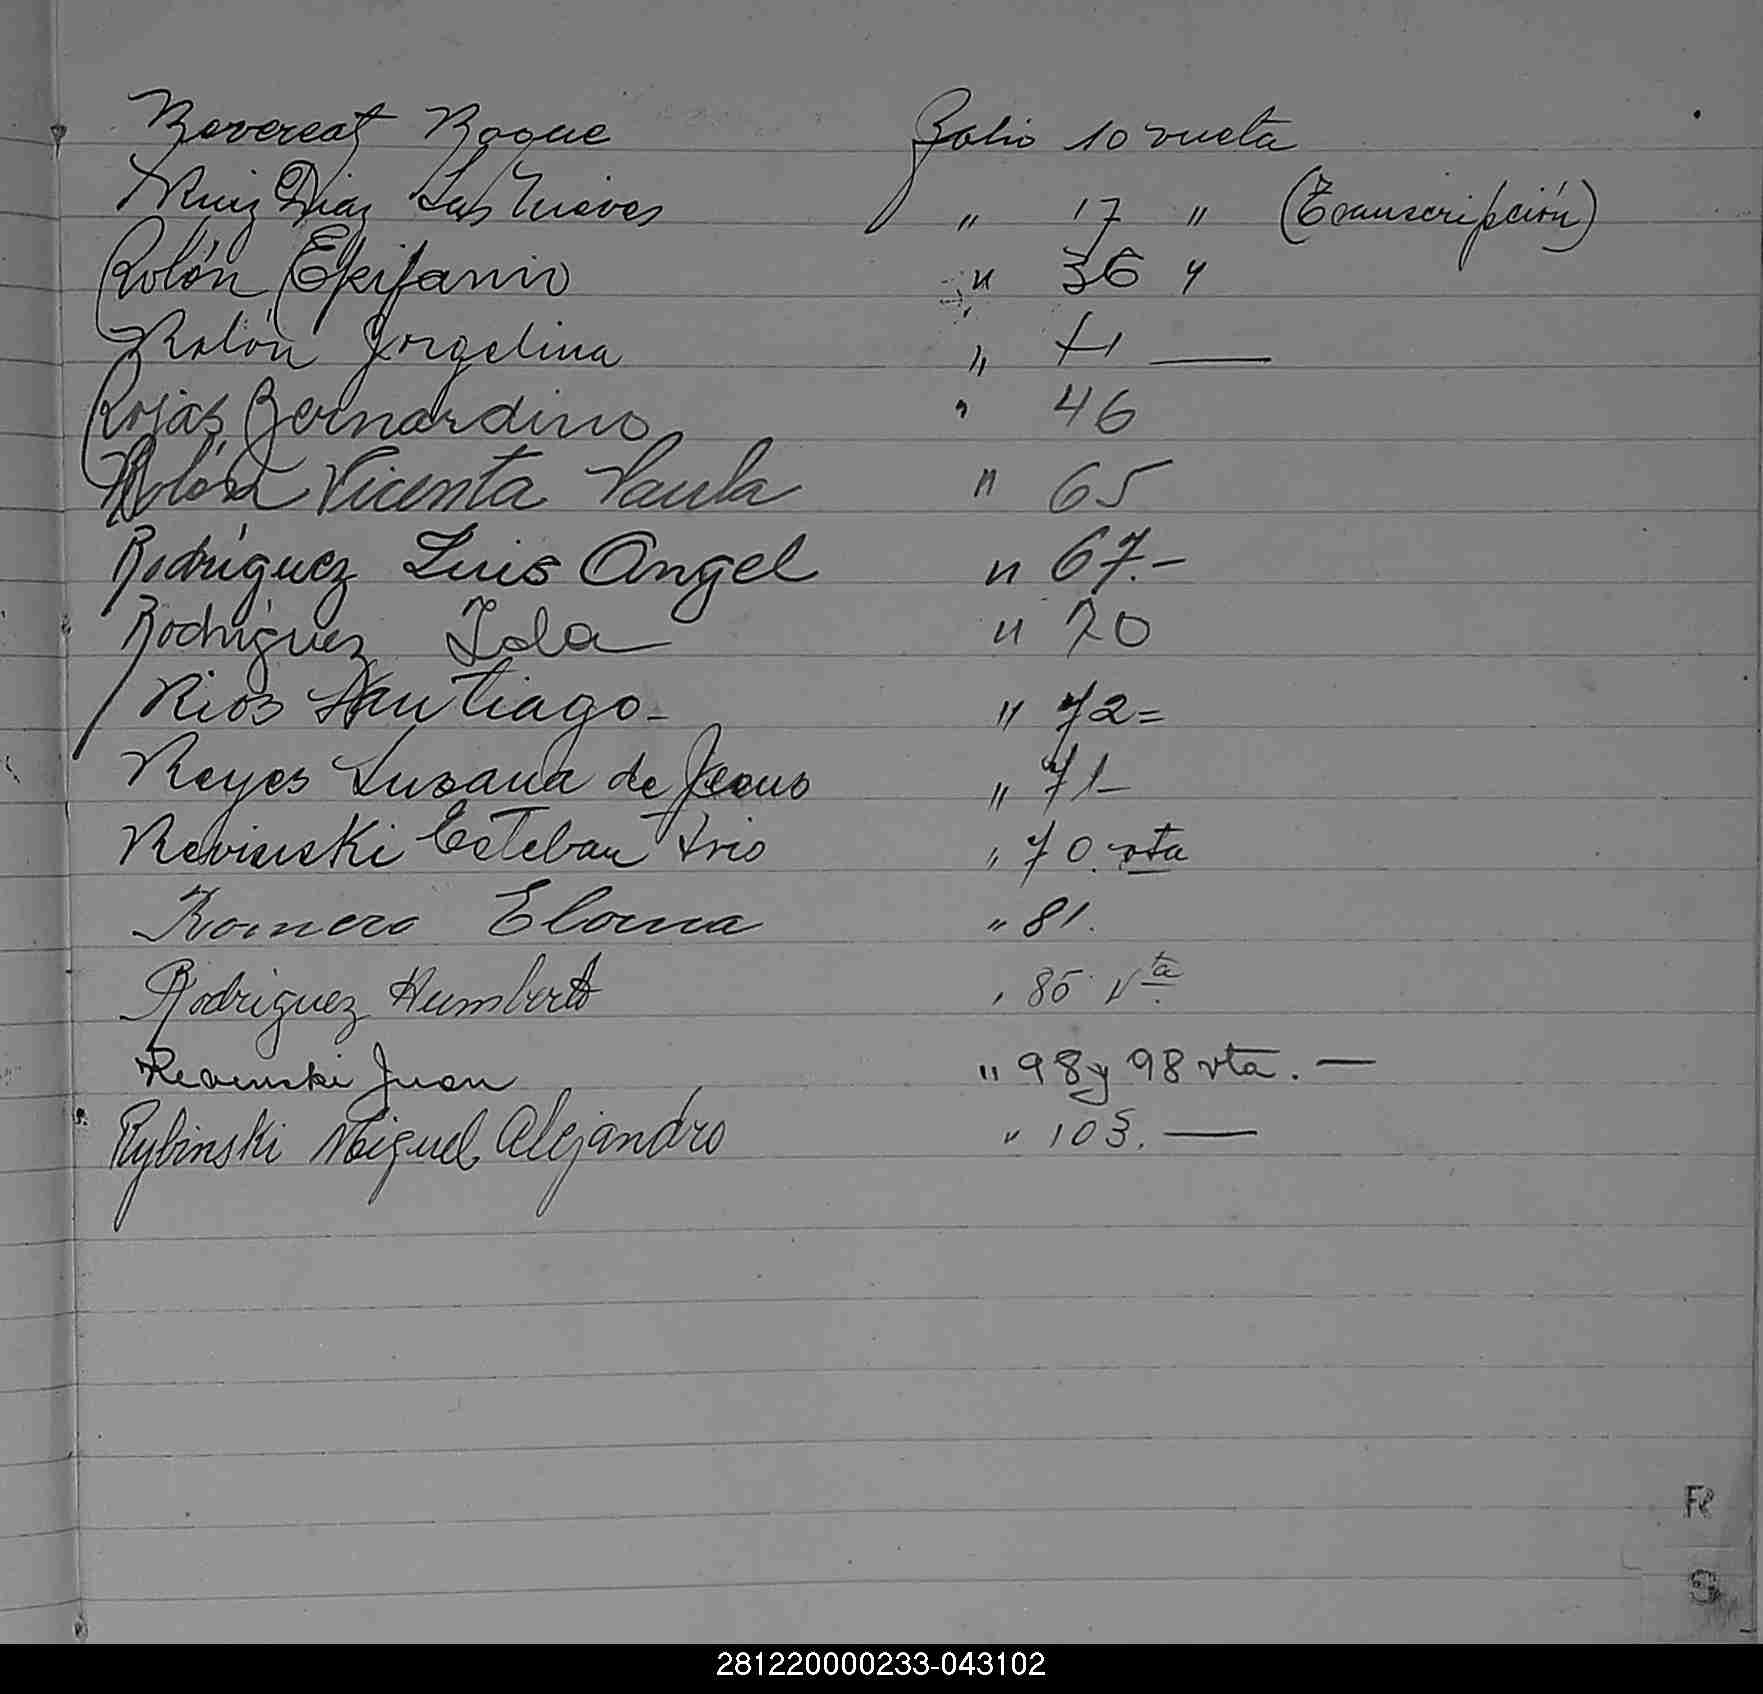 Revereat Roque Folio 10 vuelta
Ruiz Diaz Las Nieves " 17 " (Transcripción)
Rolón Epifanio " 36 "
Rolón Jorgelina " 41 —
Rojas Bernardino " 46
Rolón Vicenta Paula " 65
Rodríguez Luis Angel " 67.-
Rodríguez Ida " 70
Rios Santiago - " 72=
Reyes Susana de Jesus " 71-
Revinski Esteban Irio " 70. vta
Romero Elorma " 81.
Rodríguez Humberto " 85 vta
Revinski Juan " 98 y 98 vta. —
Rybinski Miguel Alejandro " 103. —
R
S
281220000233-043102